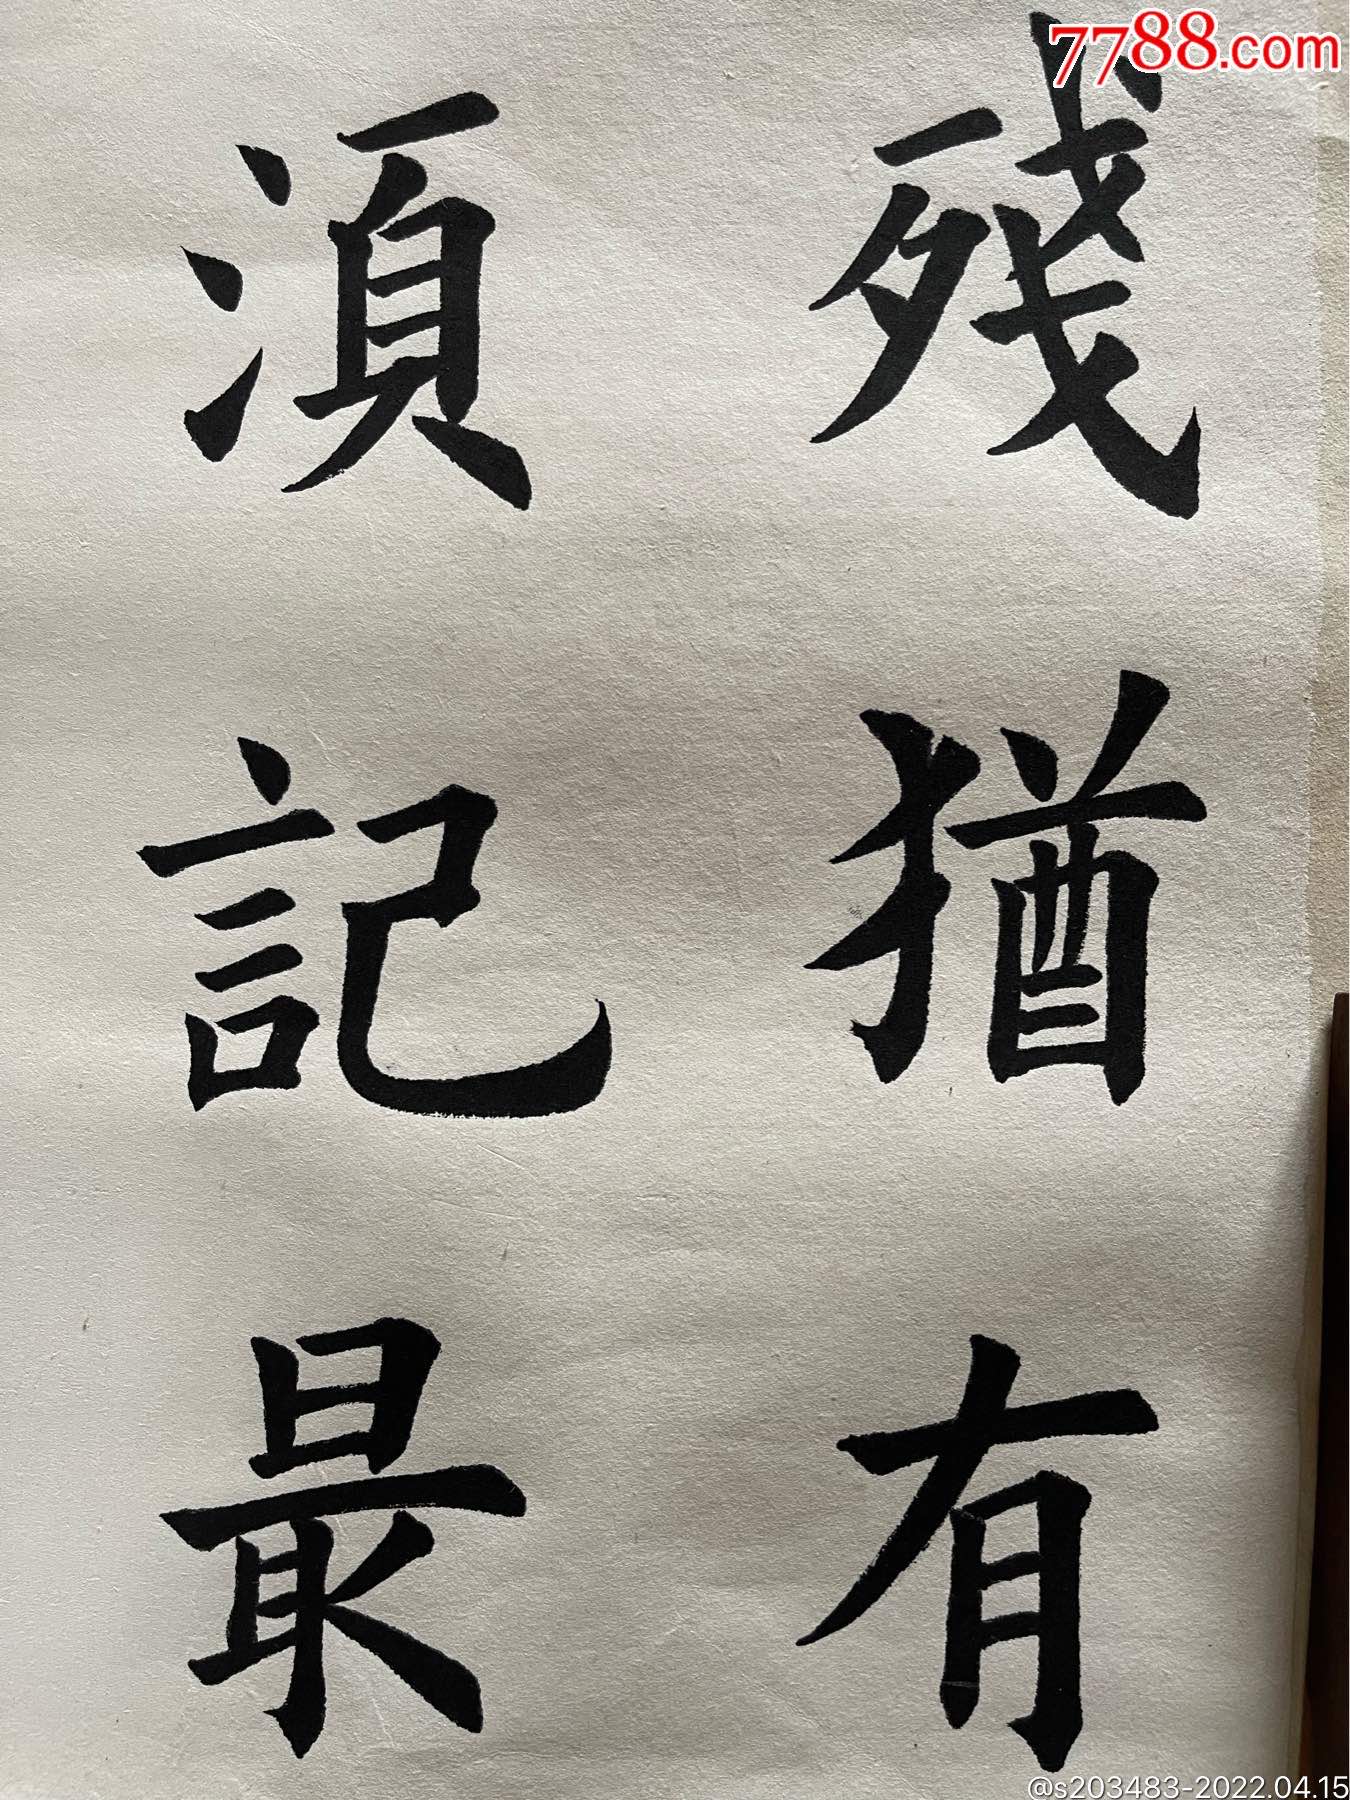 7788.com
殘猶有
湏記最
@s203483-2022.04.15